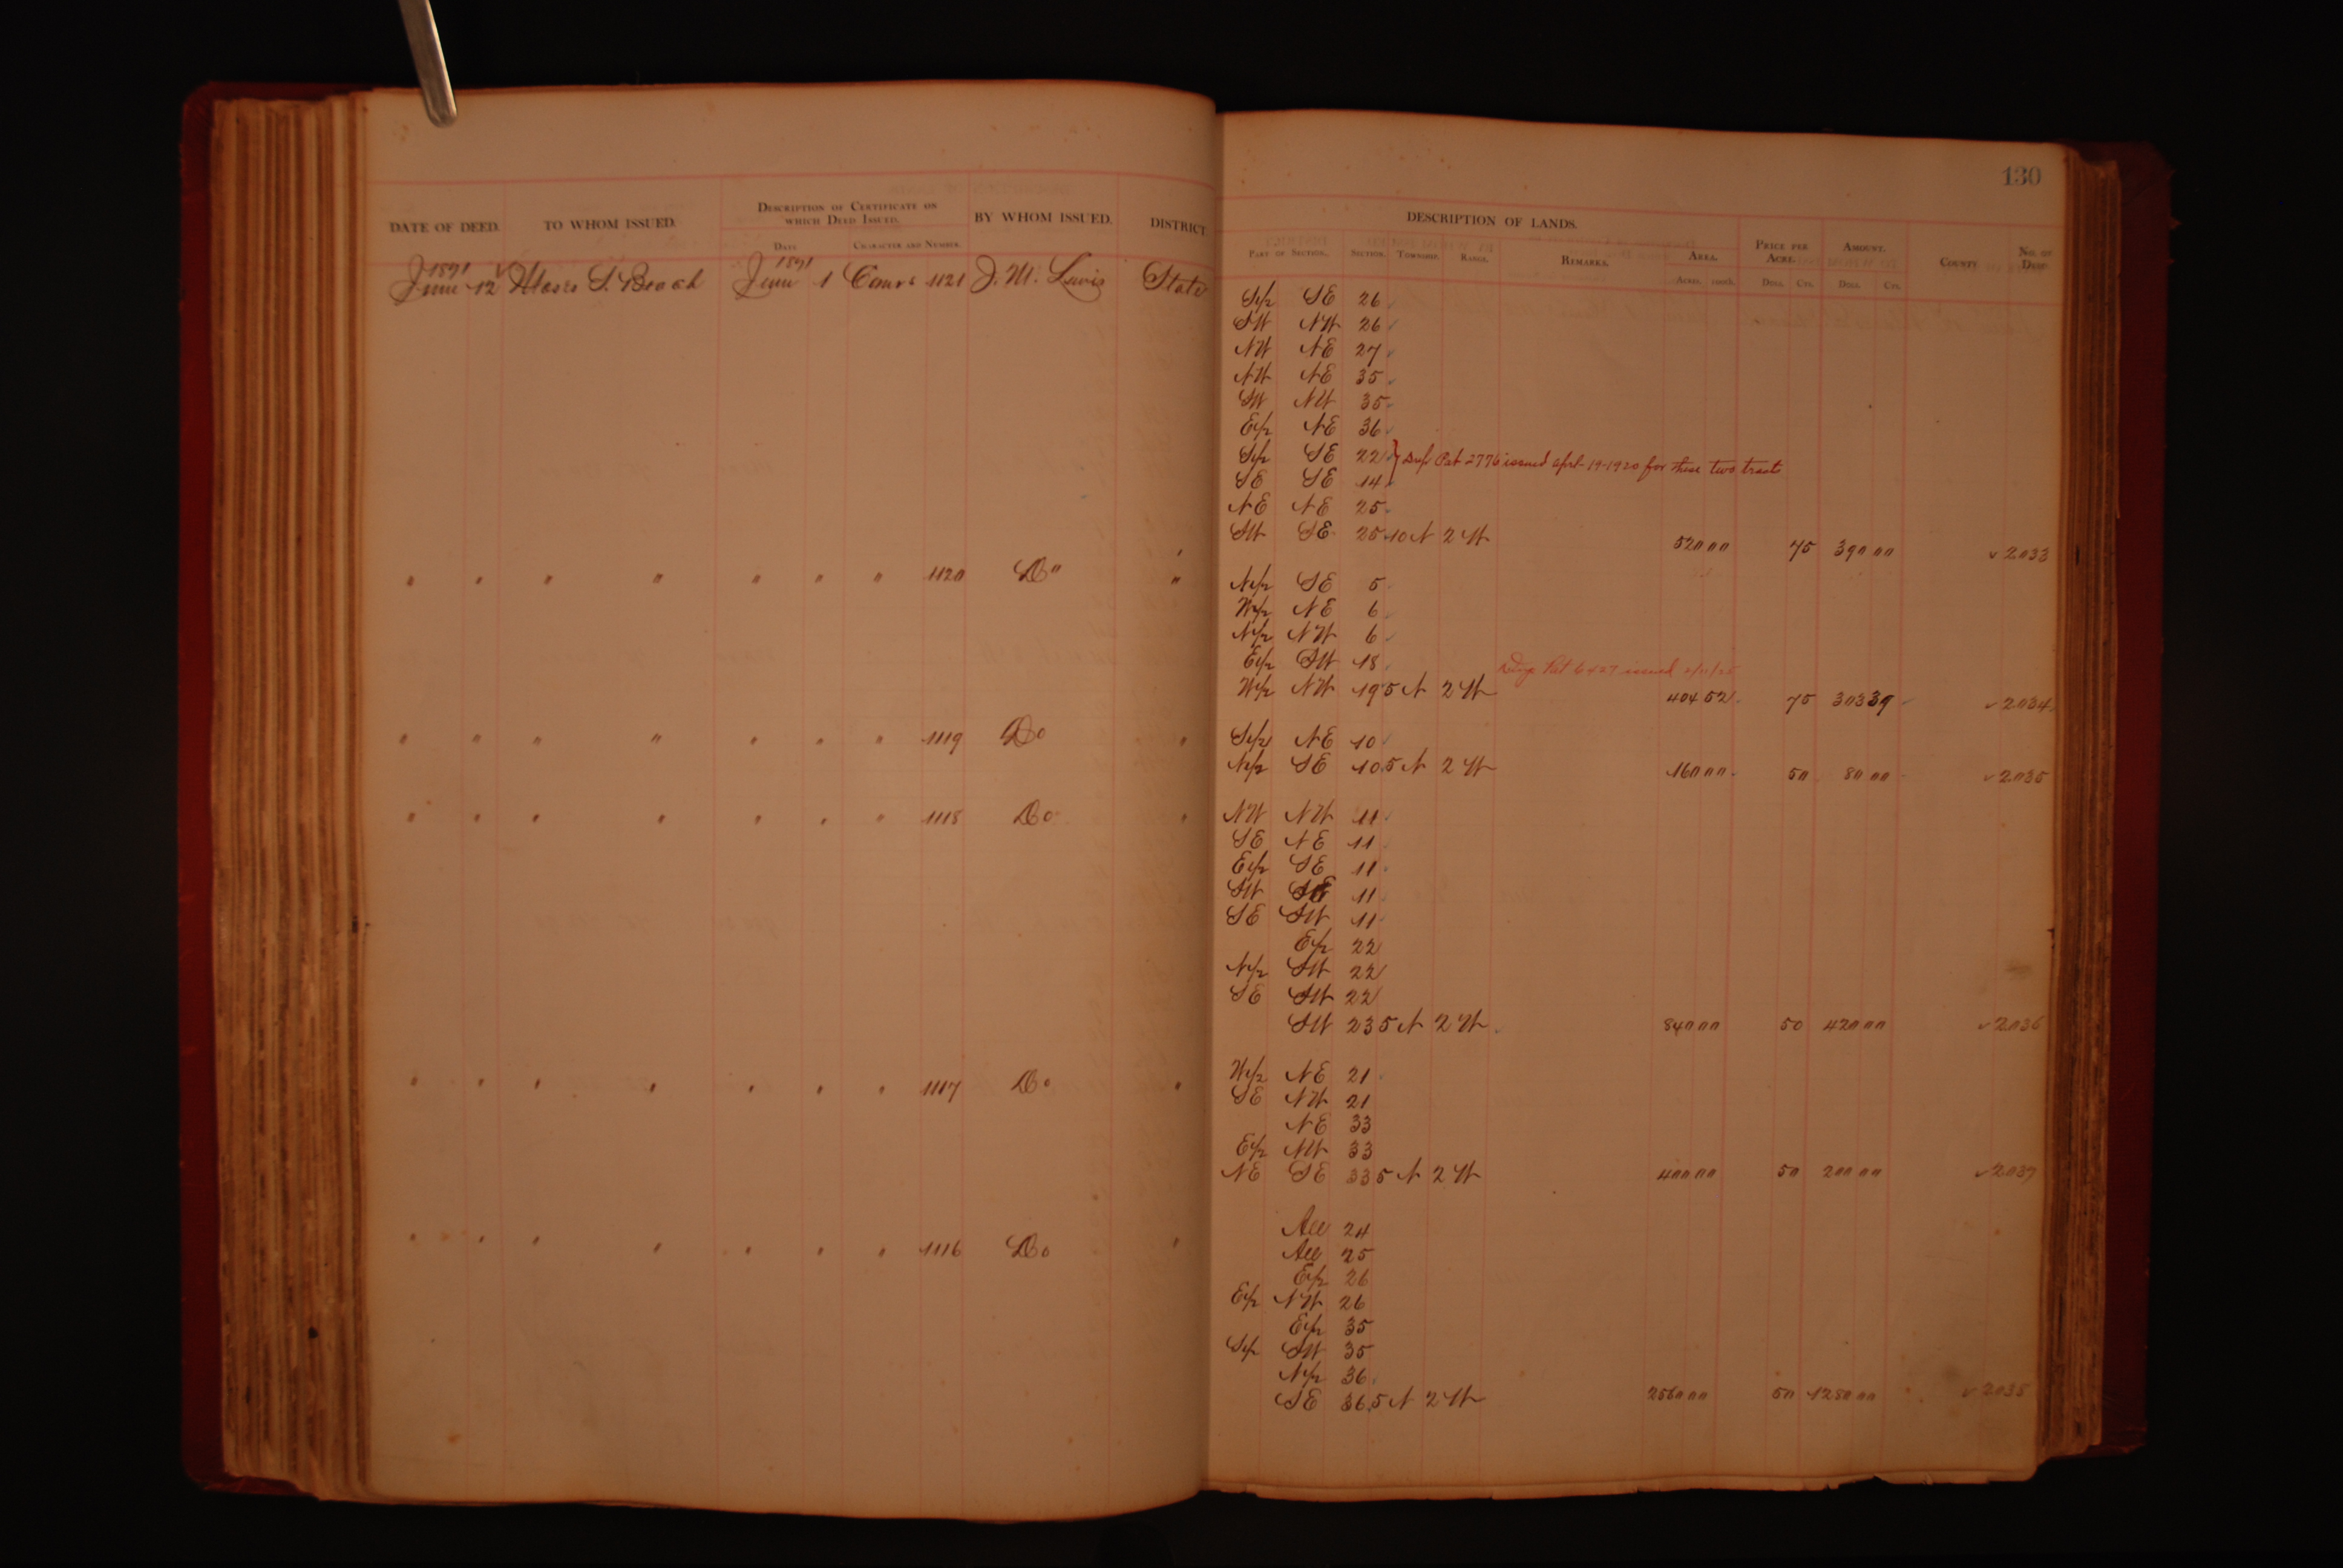 130
DATE OF DEED. TO WHOM ISSUED. DESCRIPTION OF CERTIFICATE ON WHICH DEED ISSUED. BY WHOM ISSUED. DISTRICT DESCRIPTION OF LANDS. PRICE PER ACRE. AMOUNT. COUNTY NO. OF DEED
DATE CHARACTER AND NUMBER. PART OF SECTION. SECTION. TOWNSHIP. RANGE. REMARKS. AREA.
ACRES. DOLS. CTS. DOLS. CTS.
1871 1871
June 12 Moses S. Beach June 1 1121 J. M. Lewis State
S1/2 SE 26
SW NW 26
NW NE 27
NW NE 35
SW NW 35
E1/2 NE 36
S1/2 SE 22 } Dup Pat 2776 issued Apl-19-1920 for these two tracts
SE SE 14
NE NE 25
SW SE 25 10 N 2 W 520 00 75 390 00 ✓ 2033
" " " " " " " 1120 Do " N1/2 SE 5
W1/2 NE 6
N1/2 NW 6
E1/2 SW 18
Dup Pat 6427 issued
W1/2 NW 19 5 N 2 W 404 52 75 303 39 ✓ 2034
" " " " " " " 1119 Do " S1/2 NE 10
N1/2 SE 10 5 N 2 W 160 00 50 80 00 ✓ 2035
" " " " " " " 1118 Do " NW NW 11
SE NE 11
E1/2 SE 11
SW 11
SE SW 11
E1/2 22
N1/2 SW 22
SE SW 22
SW 23 5 N 2 W 840 00 50 420 00 ✓ 2036
" " " " " " " 1117 Do " W1/2 NE 21
SE NW 21
NE 33
E1/2 NW 33
NE SE 33 5 N 2 W 400 00 50 200 00 ✓ 2037
" " " " " " " 1116 Do " All 24
All 25
E1/2 26
E1/2 NW 26
E1/2 35
S1/2 SW 35
N1/2 36
SE 36 5 N 2 W 2560 00 50 1280 00 ✓ 2038